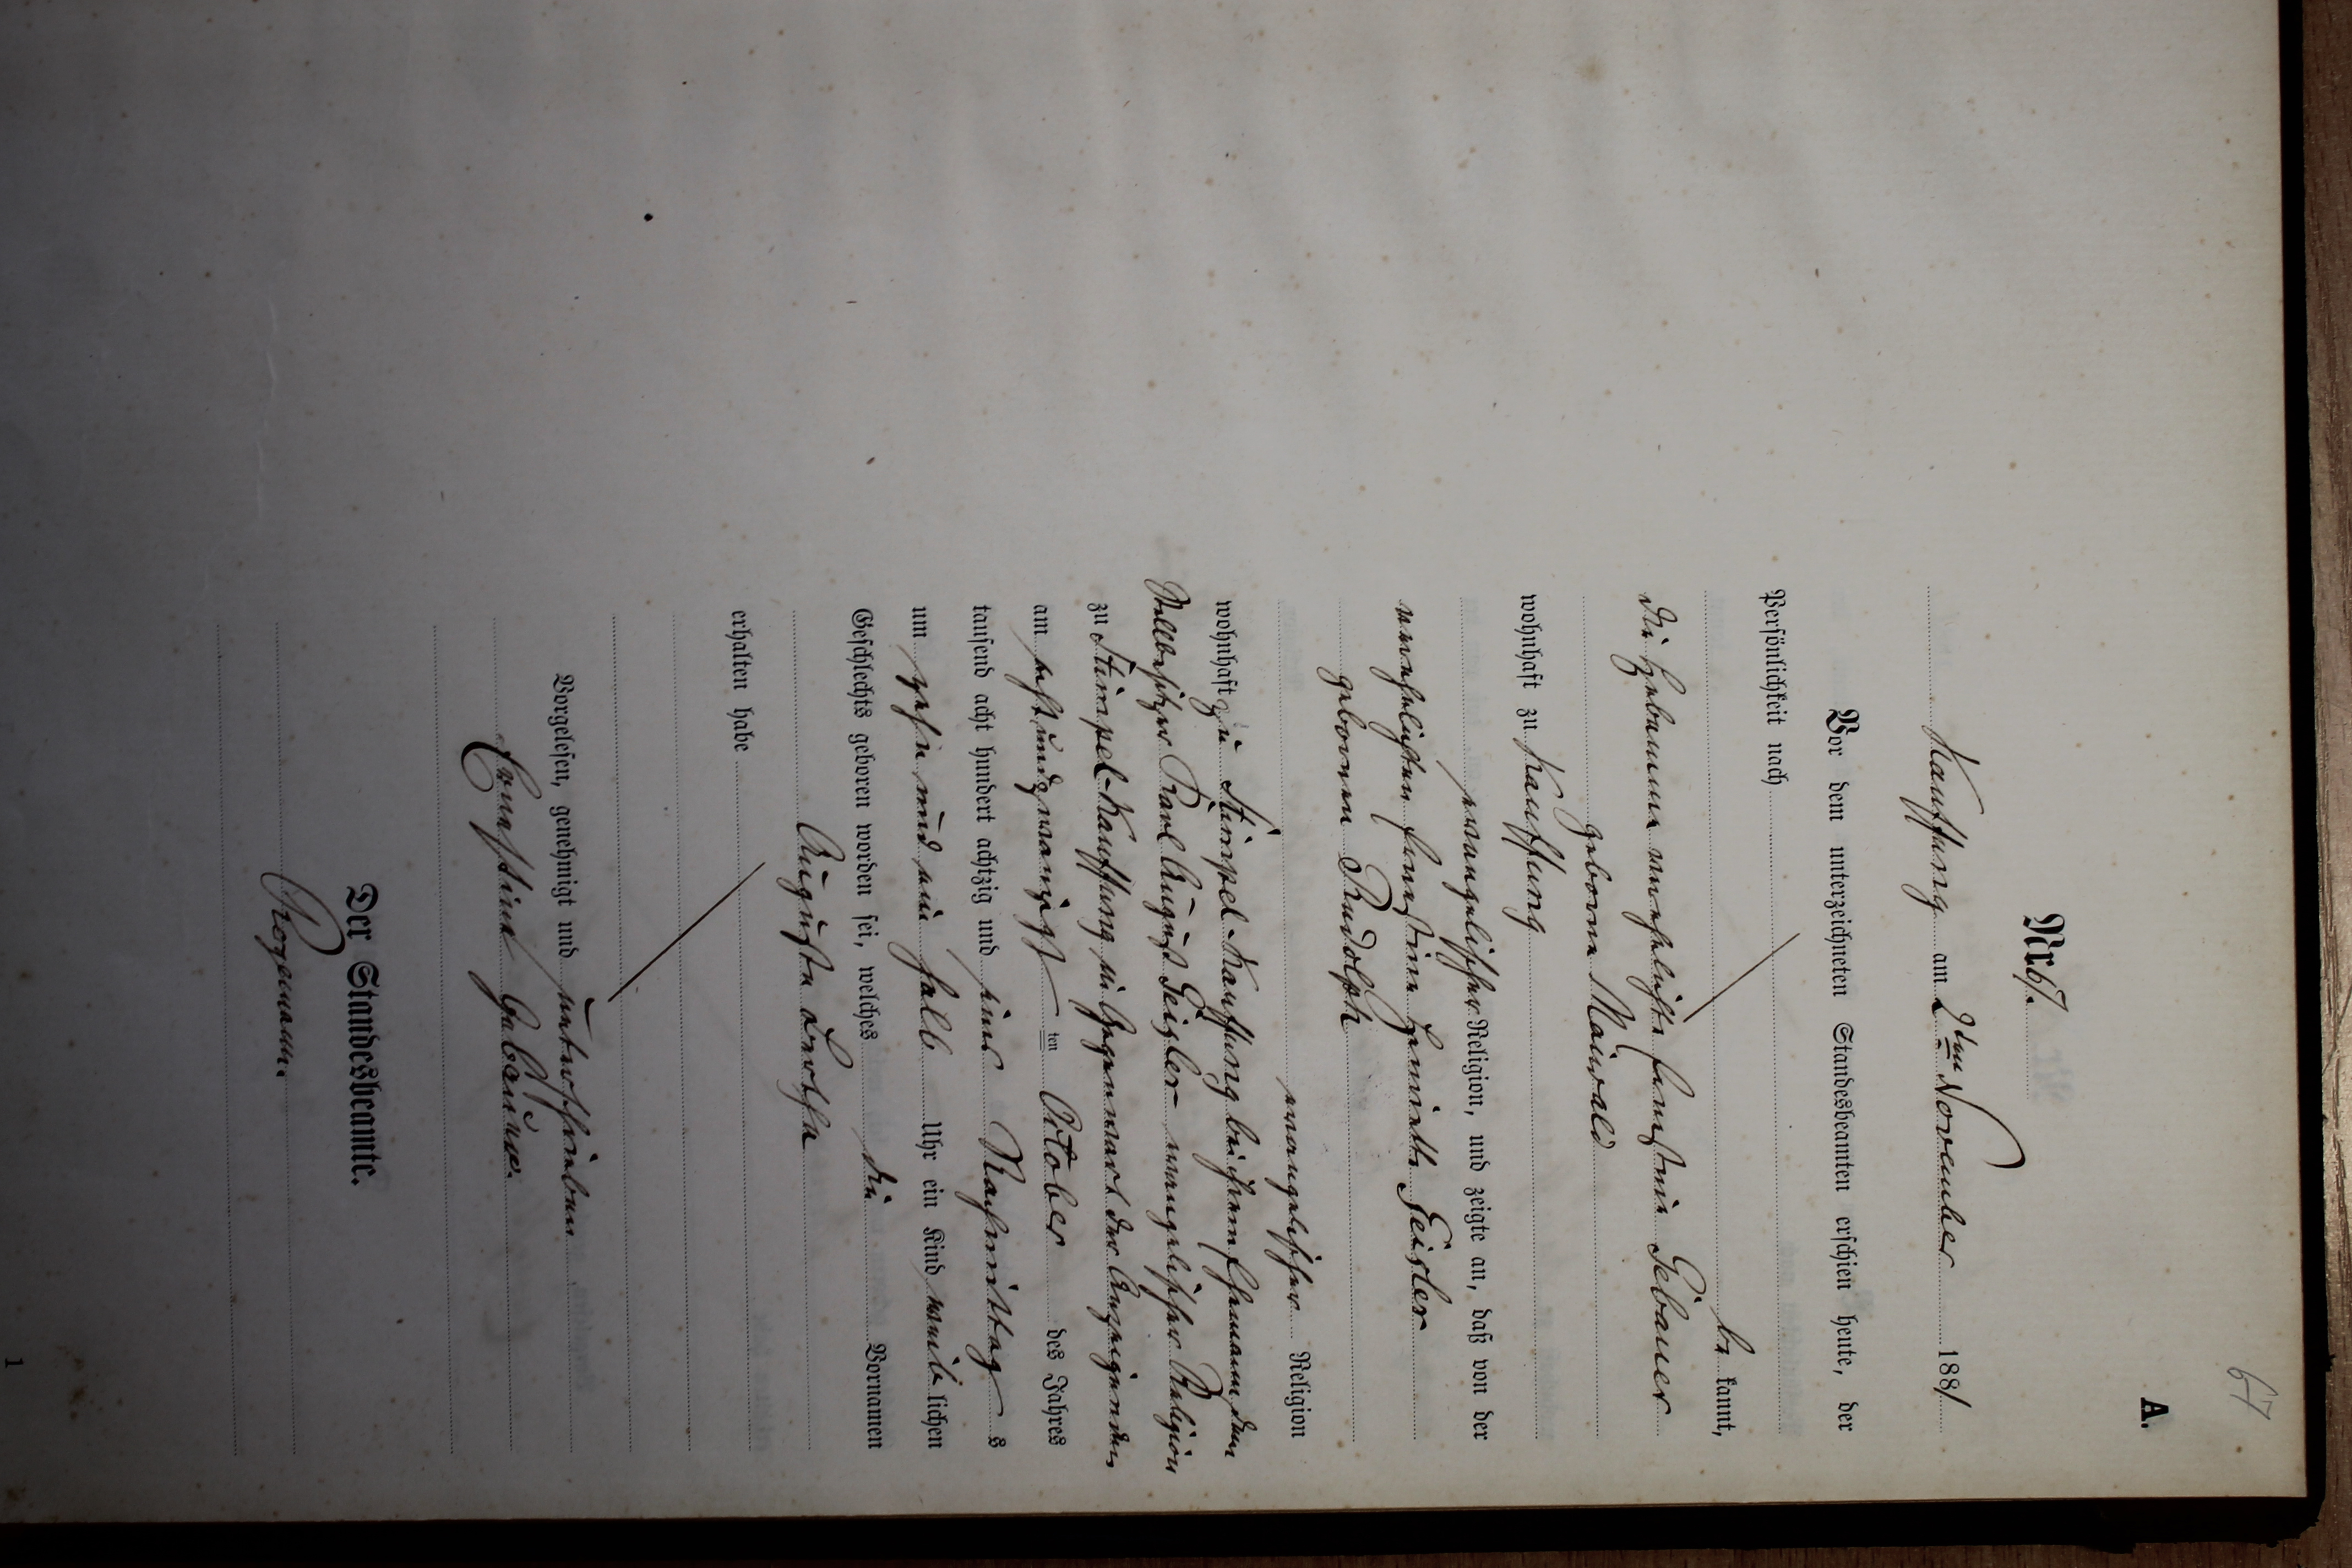 67
A.
Nr. 67.
Kauffung am 2ten November 1881
Vor dem unterzeichneten Standesbeamten erschien heute, der
Persönlichkeit nach
be kannt,
die Hebamme verehelichte Ernestine Gebauer
geborne Maiwald
wohnhaft zu Kauffung
evangelischer Religion, und zeigte an, daß von der
verehelichten Ernestine Henriette Geisler
gebornen Rudolph
evangelischer Religion
wohnhaft zu Stimpel-Kauffung bei ihrem Ehemann, dem
Stellbesitzer Karl August Geisler evangelischer Religion
zu Stimpel-Kauffung in Gegenwart der Anzeigenden
am achtundzwanzigsten October des Jahres
tausend acht hundert achtzig und eins Nachmittag s
um zehn und ein halb Uhr ein Kind weib lichen
Geschlechts geboren worden sei, welches die Vornamen
Auguste Bertha
erhalten habe
Vorgelesen, genehmigt und unterschrieben
Ernestine Gebauer.
Der Standesbeamte.
1